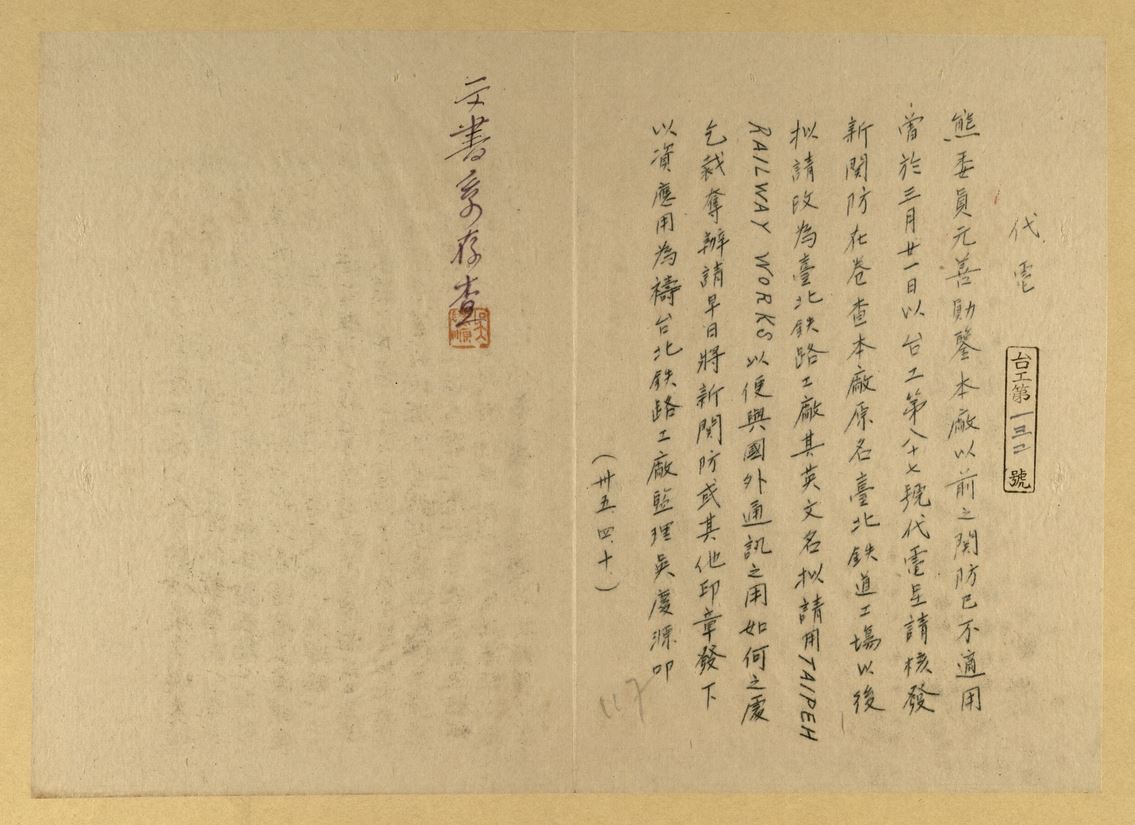 代電
台工第一三二號
熊委員元善勛鑒本廠以前之関防已不適用
曾於三月廿一日以台工第八十七號代電呈請核發
新関防在卷查本廠原名臺北鉄道工場以後
拟請改為臺北鉄路工廠其英文名拟請用TAIPEH
RAILWAY WORKS以便與國外通訊之用如何之處
乞裁奪辦請早日將新関防或其他印章發下
以資應用為禱台北鉄路工廠監理吳慶源叩
(卅五.四.十.)
117
文書存查